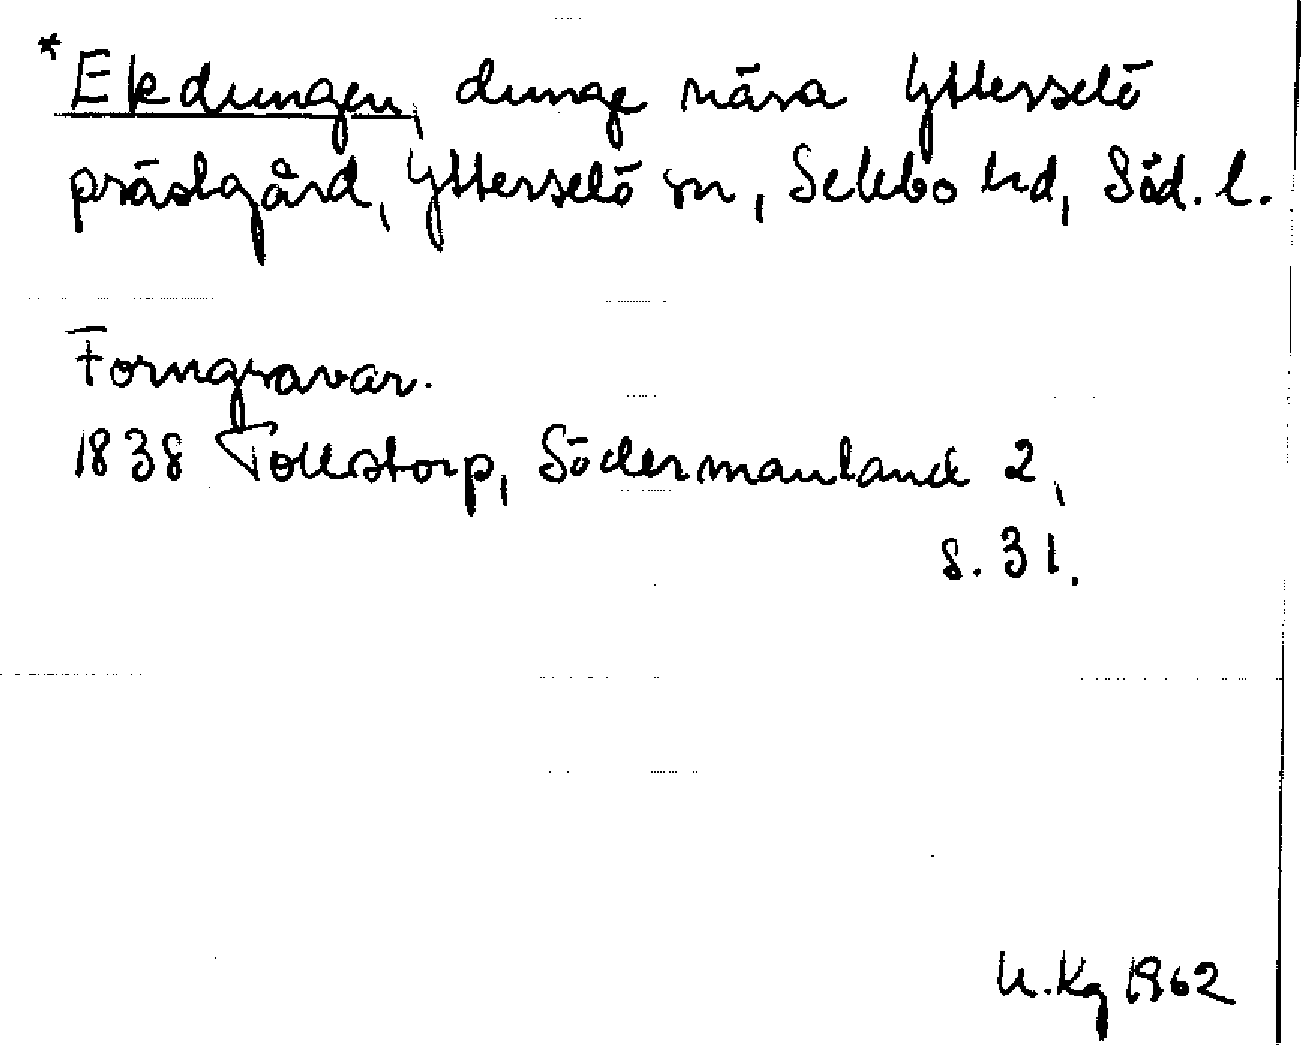 *Ekdungen, dunge nära Ytterselö
prästgård, Ytterselö sn, Selebo hd, Söd. l.
Forngravar.
1838 Tollstorp, Södermanland 2,
s. 31.
K.Kg 1962